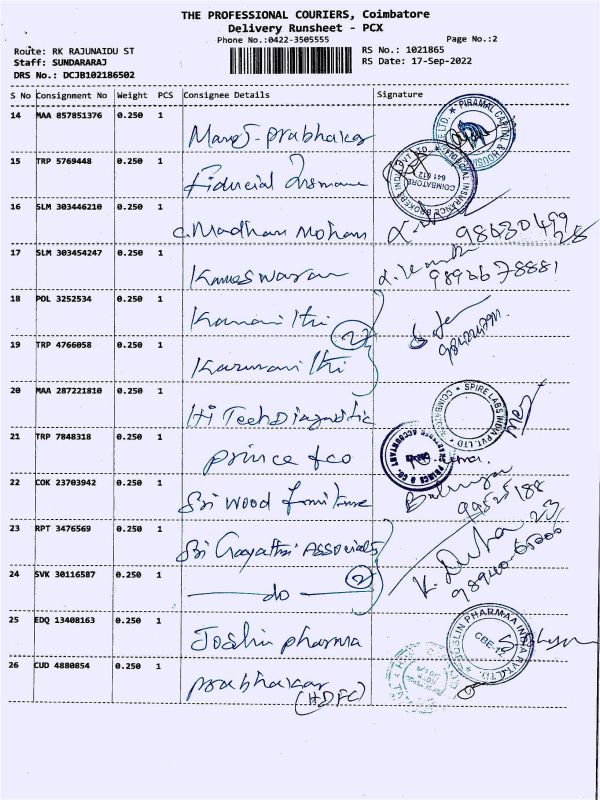 THE PROFESSIONAL COURIERS, Coimbatore
Delivery Runsheet - PCX
Phone No.:0422-3505555
Page No.:2
Route: RK RAJUNAIDU ST
RS No.: 1021865
Staff: SUNDARARAJ
RS Date: 17-Sep-2022
DRS No.: DCJB102186502
S No Consignment No Weight PCS Consignee Details Signature
14 MAA 857851376 0.250 1
Manoj-prabhakar
PIRAMAL CAPITAL & HOUSI
15 TRP 5769448 0.250 1
Fiducial Insurance
INSURANCE BROKERS INDIA PVT LTD
COIMBATORE
641 012
16 SLM 303446210 0.250 1
C. Madhan Mohan
17 SLM 303454247 0.250 1
Kameswaran
18 POL 3252534 0.250 1
2
19 TRP 4766058 0.250 1
20 MAA 287221810 0.250 1
Hi Tech Diagnostic
SPIRE LABS INDIA PVT. LTD
21 TRP 7848318 0.250 1
prince & co
PRINCE & CO.
22 COK 23703942 0.250 1
Sri wood furniture
23 RPT 3476569 0.250 1
Sri Gayathri Associats
24 SVK 30116587 0.250 1
do
2
25 EDQ 13408163 0.250 1
Joshin pharma
CBE-15
26 CUD 4880854 0.250 1
prabhakar
(HDFC)